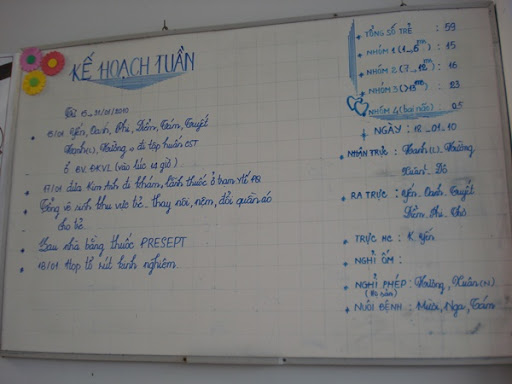 KẾ HOẠCH TUẦN
Từ 18 _ 22/01/2010
18/01 Yến, Oanh, Thi, Diễm, Tám, Tuyết
Thanh(L), Hường đi tập huấn CST
ở BV. ĐKVL (vào lúc 14 giờ)
19/01 đưa Kim Anh đi khám, lãnh thuốc ở trạm y tế P2.
Tổng vệ sinh khu vực bé. thay nôi, nệm, đổi quần áo
cho bé
Lau nhà bằng thuốc PRESEPT
18/01 Họp tổ rút kinh nghiệm
TỔNG SỐ TRẺ : 59
NHÓM 1 (1_6th) : 15
NHÓM 2 (7_12th) : 16
NHÓM 3 (>13th) : 23
NHÓM 4 (bại não) : 05
NGÀY : 18_01_10
NHẬN TRỰC : Thanh(L). Hường
Xuân. Đỏ
RA TRỰC : Yến. Oanh. Tuyết
Diễm. Thi. Thơ
TRỰC HC : K Yến
NGHỈ ỐM :
NGHỈ PHÉP : Hường, Xuân (N)
NUÔI BỆNH : Mười, Nga, Tám